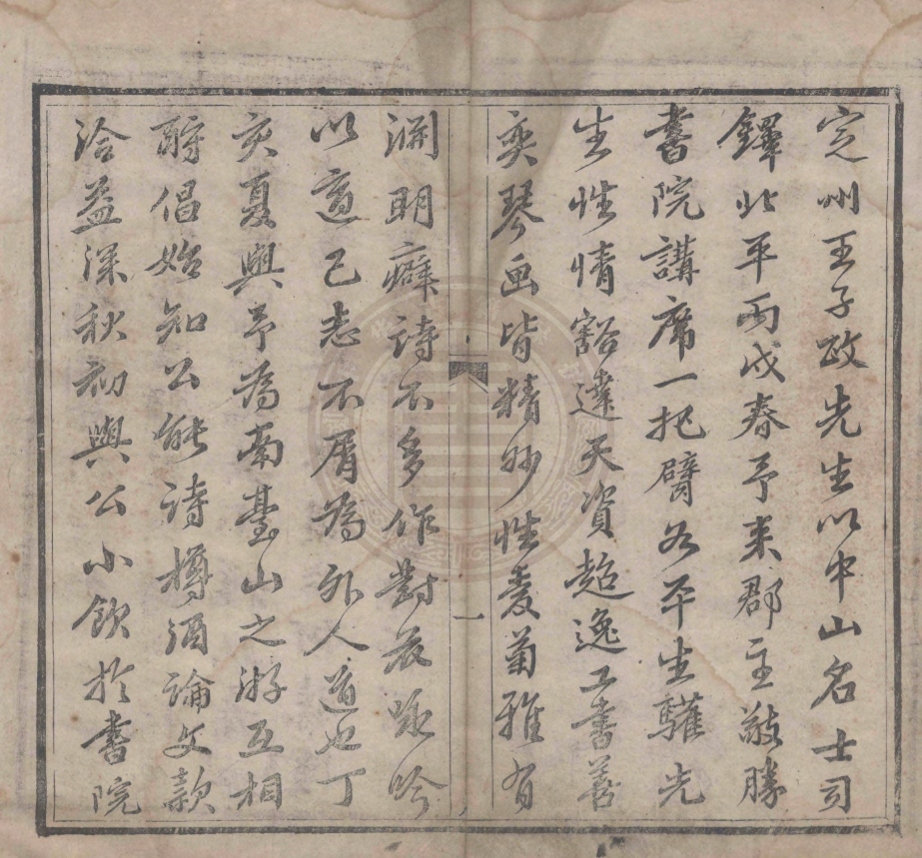 定州王子政先生以中山名士司
鐸北平丙戌春予来郡主敬勝
書院講席一把臂如平生驩先
生性情豁達天資超逸工書善
奕琴画皆精妙性爱菊雅有
淵明癖詩不多作對花咏吟
以適己志不屑為外人道也丁
亥夏與予為南臺山之游互相
酧倡始知公能诗樽酒論文款
洽益深秋初與公小飲於書院
一